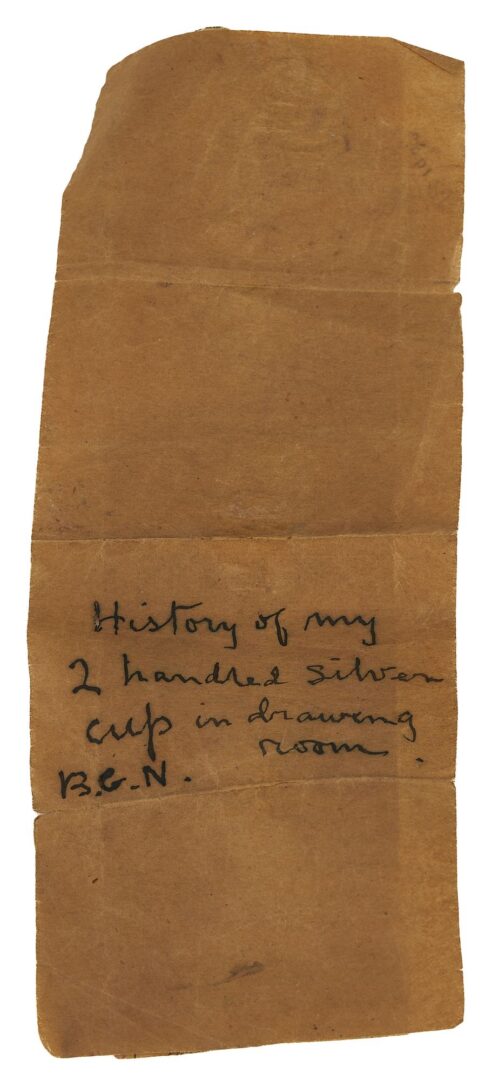 History of my
2 handled silver
cup in drawing
room.
B.G.N.